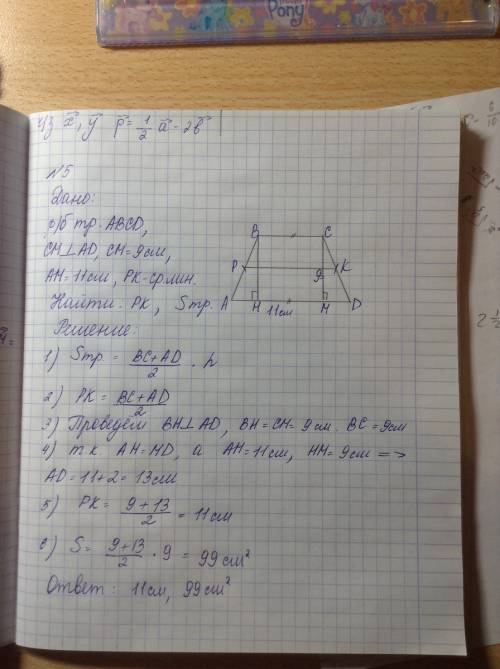 Pony
ч/з x⃗, y⃗ p⃗ = 1/2 a⃗ - 2b⃗
N5
Дано:
р/б тр. ABCD,
CM⊥AD, CM=9см,
AM=11см, PK-ср.лин.
Найти: PK, Sтр.
Решение:
B C
P 9 K
A H 11см M D
1) Sтр = BC+AD/2 · h
2) PK = BC+AD/2
3) Проведём BH⊥AD, BH=CM=9см. BC=9см
4) т.к. AH=MD, а AM=11см, HM=9см =>
AD=11+2=13см
5) PK= 9+13/2 = 11см
6) S= 9+13/2 · 9 = 99см²
Ответ: 11см, 99см²